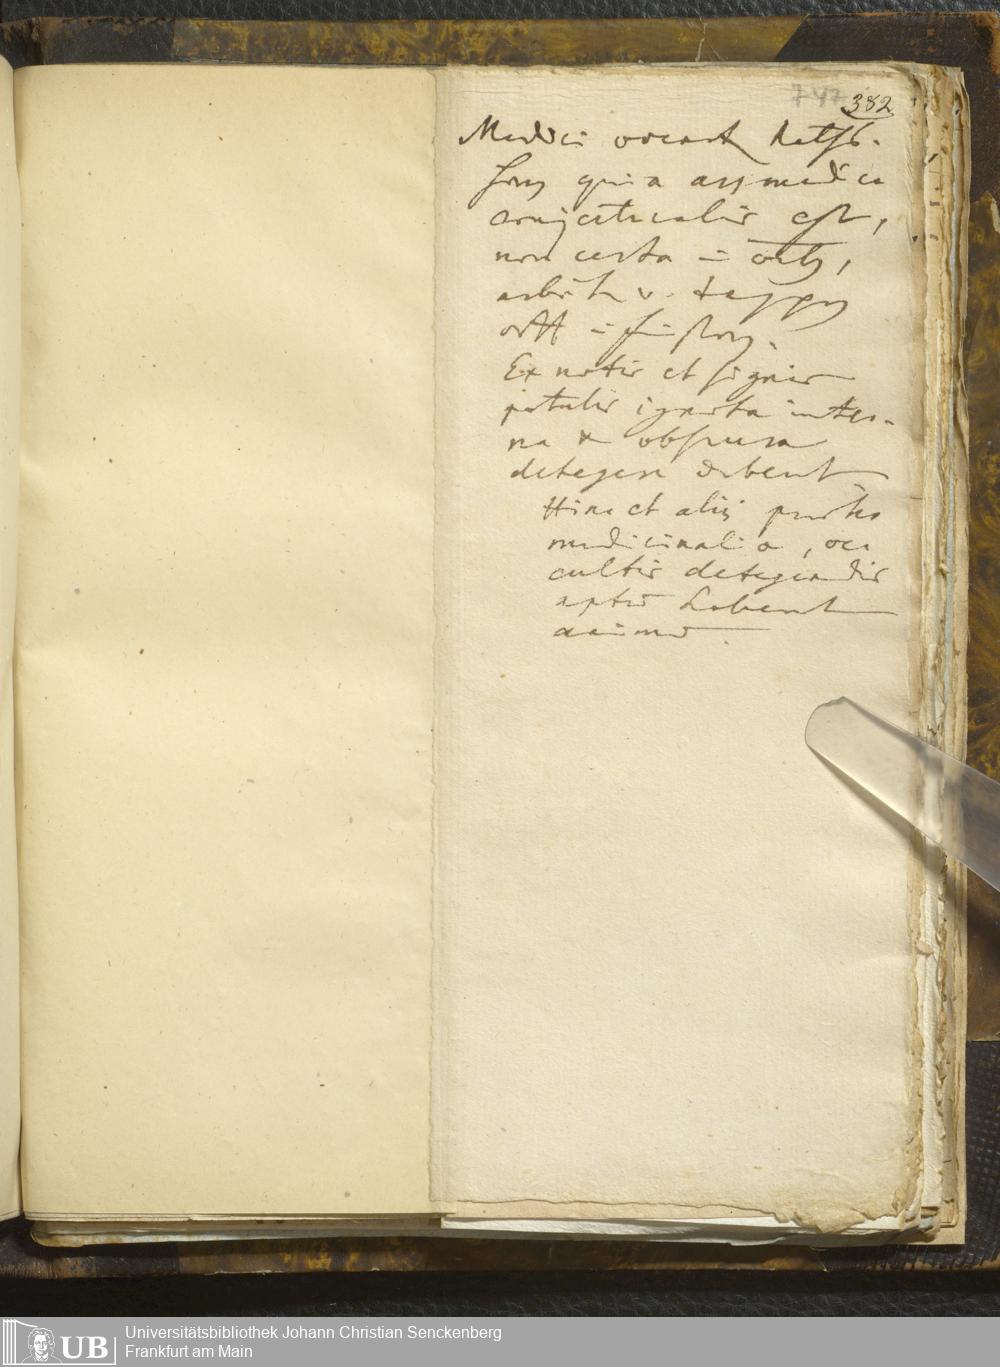 747 382
Medici vocant
quia ars medica
conjecturalis est,
non certa
arbeiten
oft im finstern.
Ex notis et signis
ignota inter-
na & obscura
detegere debent
Hinc et aliis praeter
medicinalia, oc
cultis detegendis
aptũ habent
animũ.
Universitätsbibliothek Johann Christian Senckenberg
Frankfurt am Main
UB